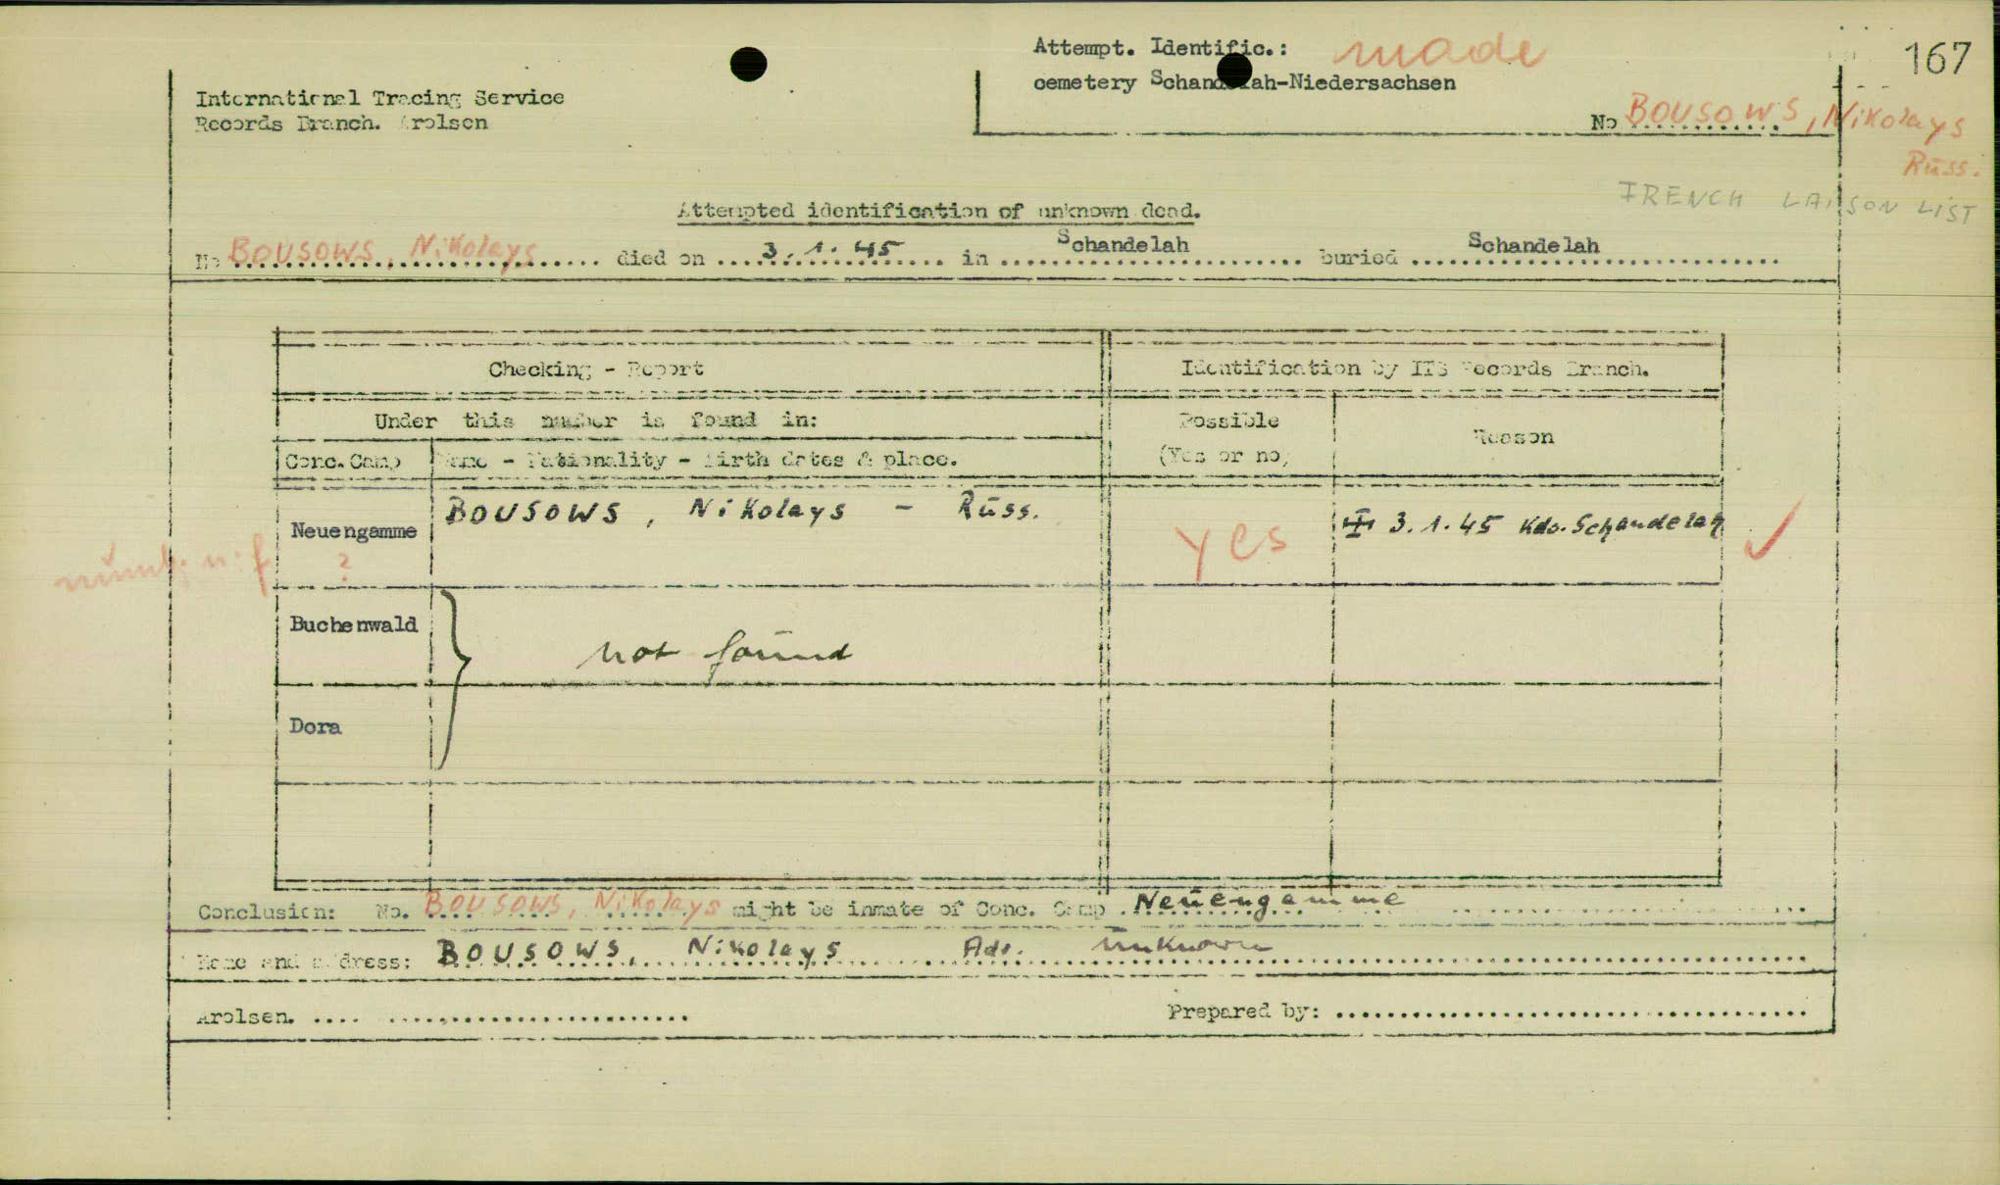 Attempt. Identific.: made
167
cemetery Schandelah-Niedersachsen
International Tracing Service
Records Branch. Arolsen
No BOUSOWS, Nikolays
Russ.
FRENCH LAISON LIST
Attempted identification of unknown dead.
No BOUSOWS, Nikolays died on 3.1.45 in Schandelah buried Schandelah
Checking - Report
Identification by ITS Records Branch.
Under this number is found in:
Possible
(Yes or no)
Reason
Conc. Camp
Name - Nationality - Birth dates & place.
Neuengamme
BOUSOWS, Nikolays - Russ.
yes
3.1.45 Kdo. Schandelah
numb. n. f
?
Buchenwald
not found
Dora
Conclusion: No. BOUSOWS, Nikolays might be inmate of Conc. Camp Neuengamme
Name and address: BOUSOWS, Nikolays Adr. unknown
Arolsen. .... ........................
Prepared by: ........................